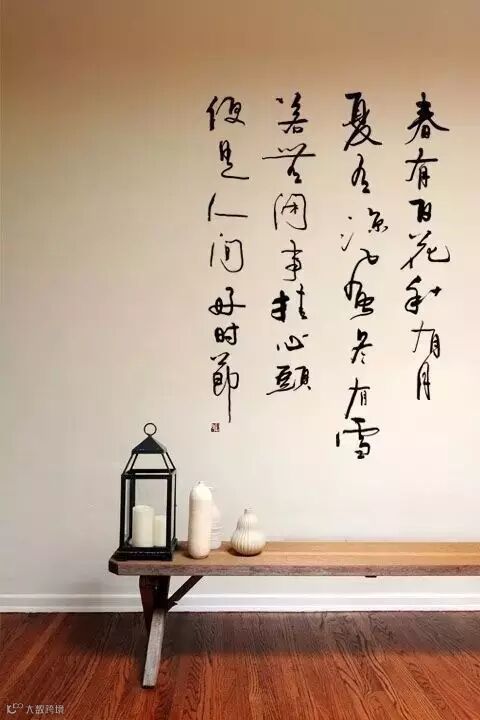 春有百花秋有月
夏有凉風冬有雪
若無闲事挂心頭
便是人间好时節
大数跨境